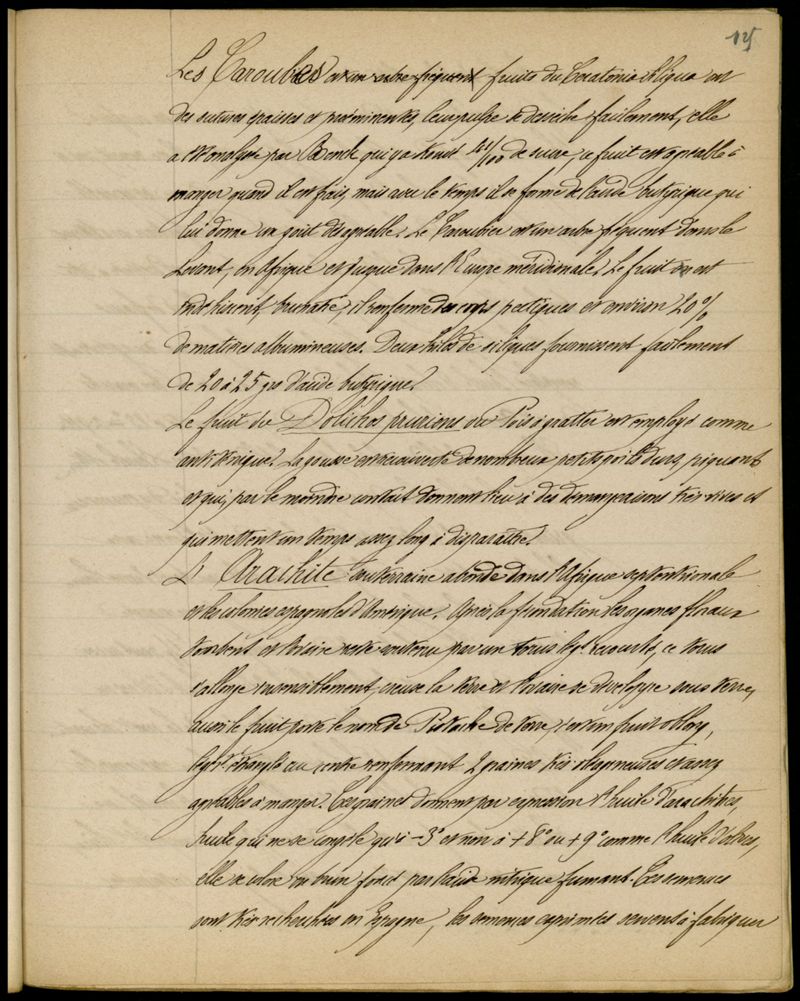 125
Les Caroubes est un arbre fréquent fruits du Ceratonia siliqua ont
des sutures épaisses et proéminentes, leur pulpe se dessèche facilement, elle
a été analysée par qui y a trouvé 41/100 de sucre, ce fruit est agréable à
manger quand il est frais, mais avec le temps il se forme de l'acide butyrique qui
lui donne un goût désagréable. Le Caroubier est un arbre fréquent dans le
Levant, en Afrique et jusque dans l'Europe méridionale. Le fruit est
indéhiscent, il renferme des corps pectiques et environ 20%
de matières albumineuses. Deux kilos de siliques fournissent facilement
de 20 à 25 grs d'acide butyrique.
Le fruit du Dolichos pruriens ou Pois à gratter est employé comme
La gousse est recouverte de nombreux petits poils durs, piquants
et qui, par le moindre contact donnent lieu à des démangeaisons très vives et
qui mettent un temps assez long à disparaître.
L' Arachite souterraine abonde dans l'Afrique septentrionale
et les colonies espagnoles d'Amérique. Après la fécondation les organes floraux
tombent et l'ovaire reste soutenu par un torus recourbé, ce torus
s'allonge sensiblement, creuse la terre et l'ovaire se développe sous terre,
aussi le fruit porte le nom de Pistache de terre, c'est un fruit oblong,
étranglé au centre renfermant 2 graines très oléagineuses et assez
agréables à manger. Ces graines donnent par expression l'huile d'arachites,
huile qui ne se congèle qu'à -3° et non à +8° ou +9° comme l'huile d'olives,
elle se colore en brun foncé par l'acide nitrique fumant. Ces semences
sont très recherchées en Espagne, les semences exprimées servent à fabriquer